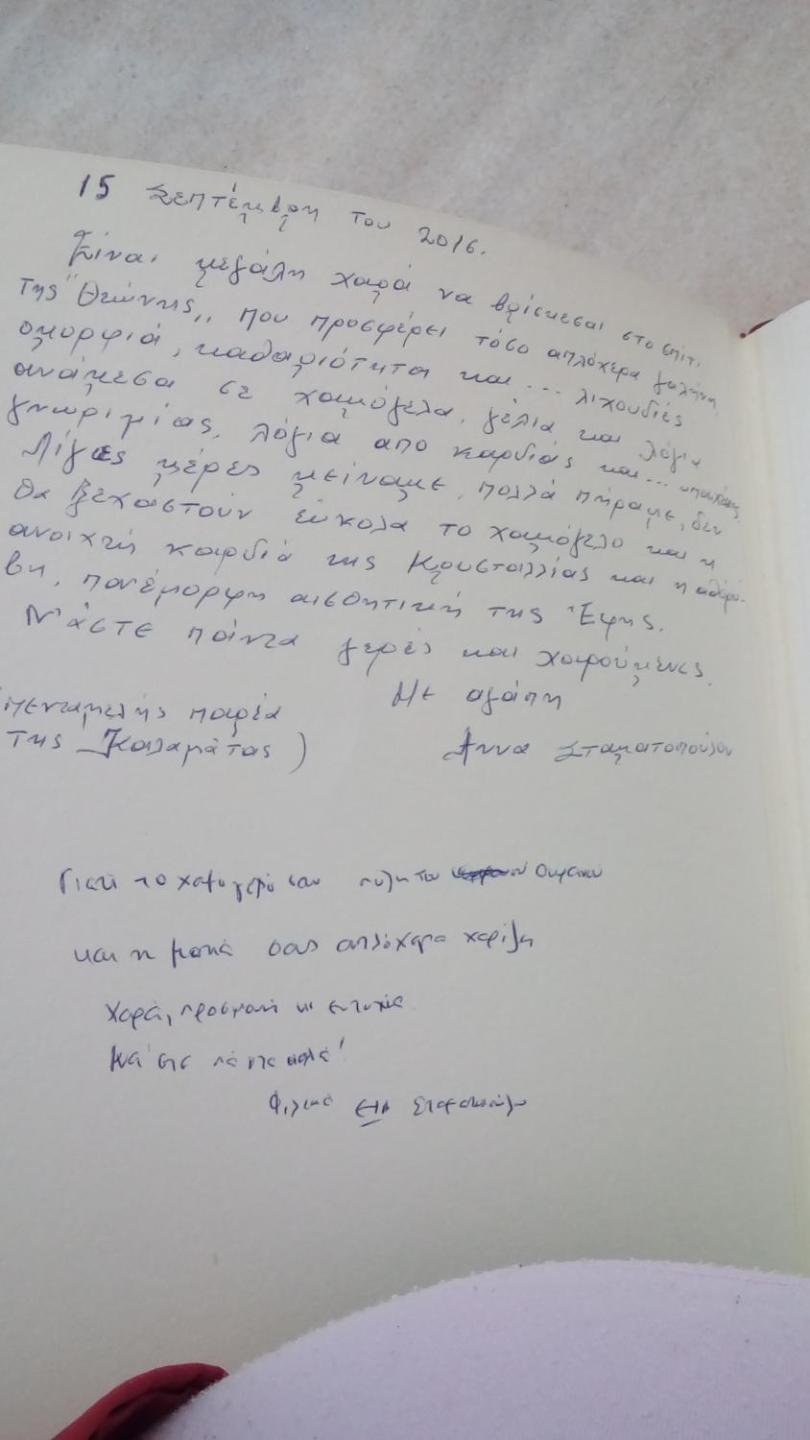 15 Σεπτέμβρη του 2016.
Είναι μεγάλη χαρά να βρίσκεσαι στο σπίτι
της "Θεώνης,, που προσφέρει τόσο απλόχερα γαλήνη,
ομορφιά, καθαριότητα και... λιχουδιές
ανάμεσα σε χαμόγελα, γέλια και λόγια
γνωριμίας, λόγια απο καρδιάς και...
Λίγες μέρες μείναμε, πολλά πήραμε, δεν
θα ξεχαστούν εύκολα το χαμόγελο και η
ανοιχτή καρδιά της Κρυσταλλίας και η αθόρυ-
βη, πανέμορφη αισθητική της Έφης.
Ν' άστε πάντα γερές και χαρούμενες.
Με αγάπη
(πενταμελής παρέα
της Καλαμάτας)
Άννα Σταματοπούλου
Γιατί το χαμόγελό σου του Ουρανού
και η ματιά σας απλόχερα χαρίζη
Χαρά, προσμονή κι ευτυχία
Νά' στε πάντα καλά!
Φιλικά